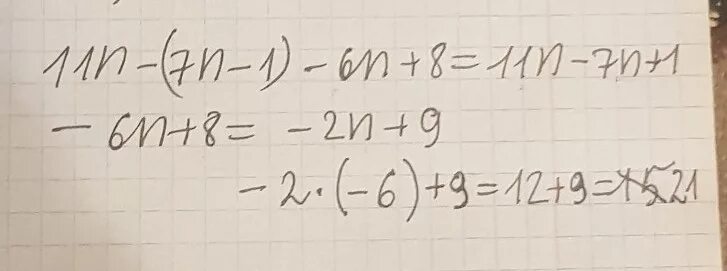 11n-(7n-1)-6n+8=11n-7n+1
-6n+8= -2n+9
-2·(-6)+9=12+9=21